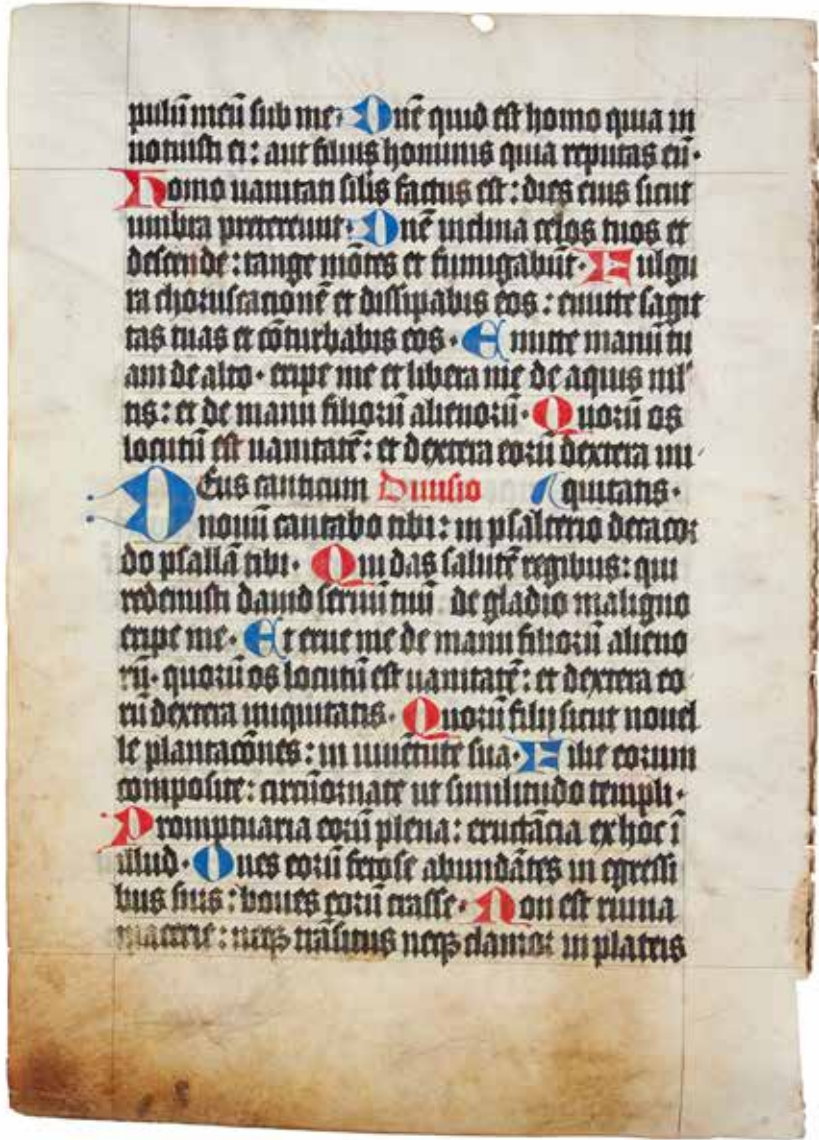 pulū meū sub me. Dne̅ quid est homo quia in
notuisti ei: aut filius hominis quia reputas eū.
Homo uanitati silis factus est: dies eius sicut
umbra pretereunt. Dne̅ inclina celos tuos et
descende: tange mōtes et fumigabūt. Fulgu
ra choruscationē et dissipabis eos: emitte sagit
tas tuas et cōturbabis eos. Emitte manū tu
am de alto. eripe me et libera me de aquis ml'
tis: et de manu filiorū alienorū. Quorū os
locutū est uanitatē: et dextera eorū dextera ini
DEus canticum Diuisio quitatis.
nouū cantabo tibi: in psalterio decacor
do psallā tibi. Qui das salutē regibus: qui
redemisti dauid seruū tuū de gladio maligno
eripe me. Et erue me de manu filiorū alieno
rū. quorū os locutū est uanitatē: et dextera eo
rū dextera iniquitatis. Quorū filij sicut nouel
le plantacōnes: in iuuētute sua. Filie eorum
composite: circūornate ut similitudo templi.
Promptuaria eorū plena: eructācia ex hoc ī
illud. Oues eorū fetose abundātes in egressi
bus suis: boues eorū crasse. Non est ruina
macerie: neqꝫ trāsitus neqꝫ clamor in plateis